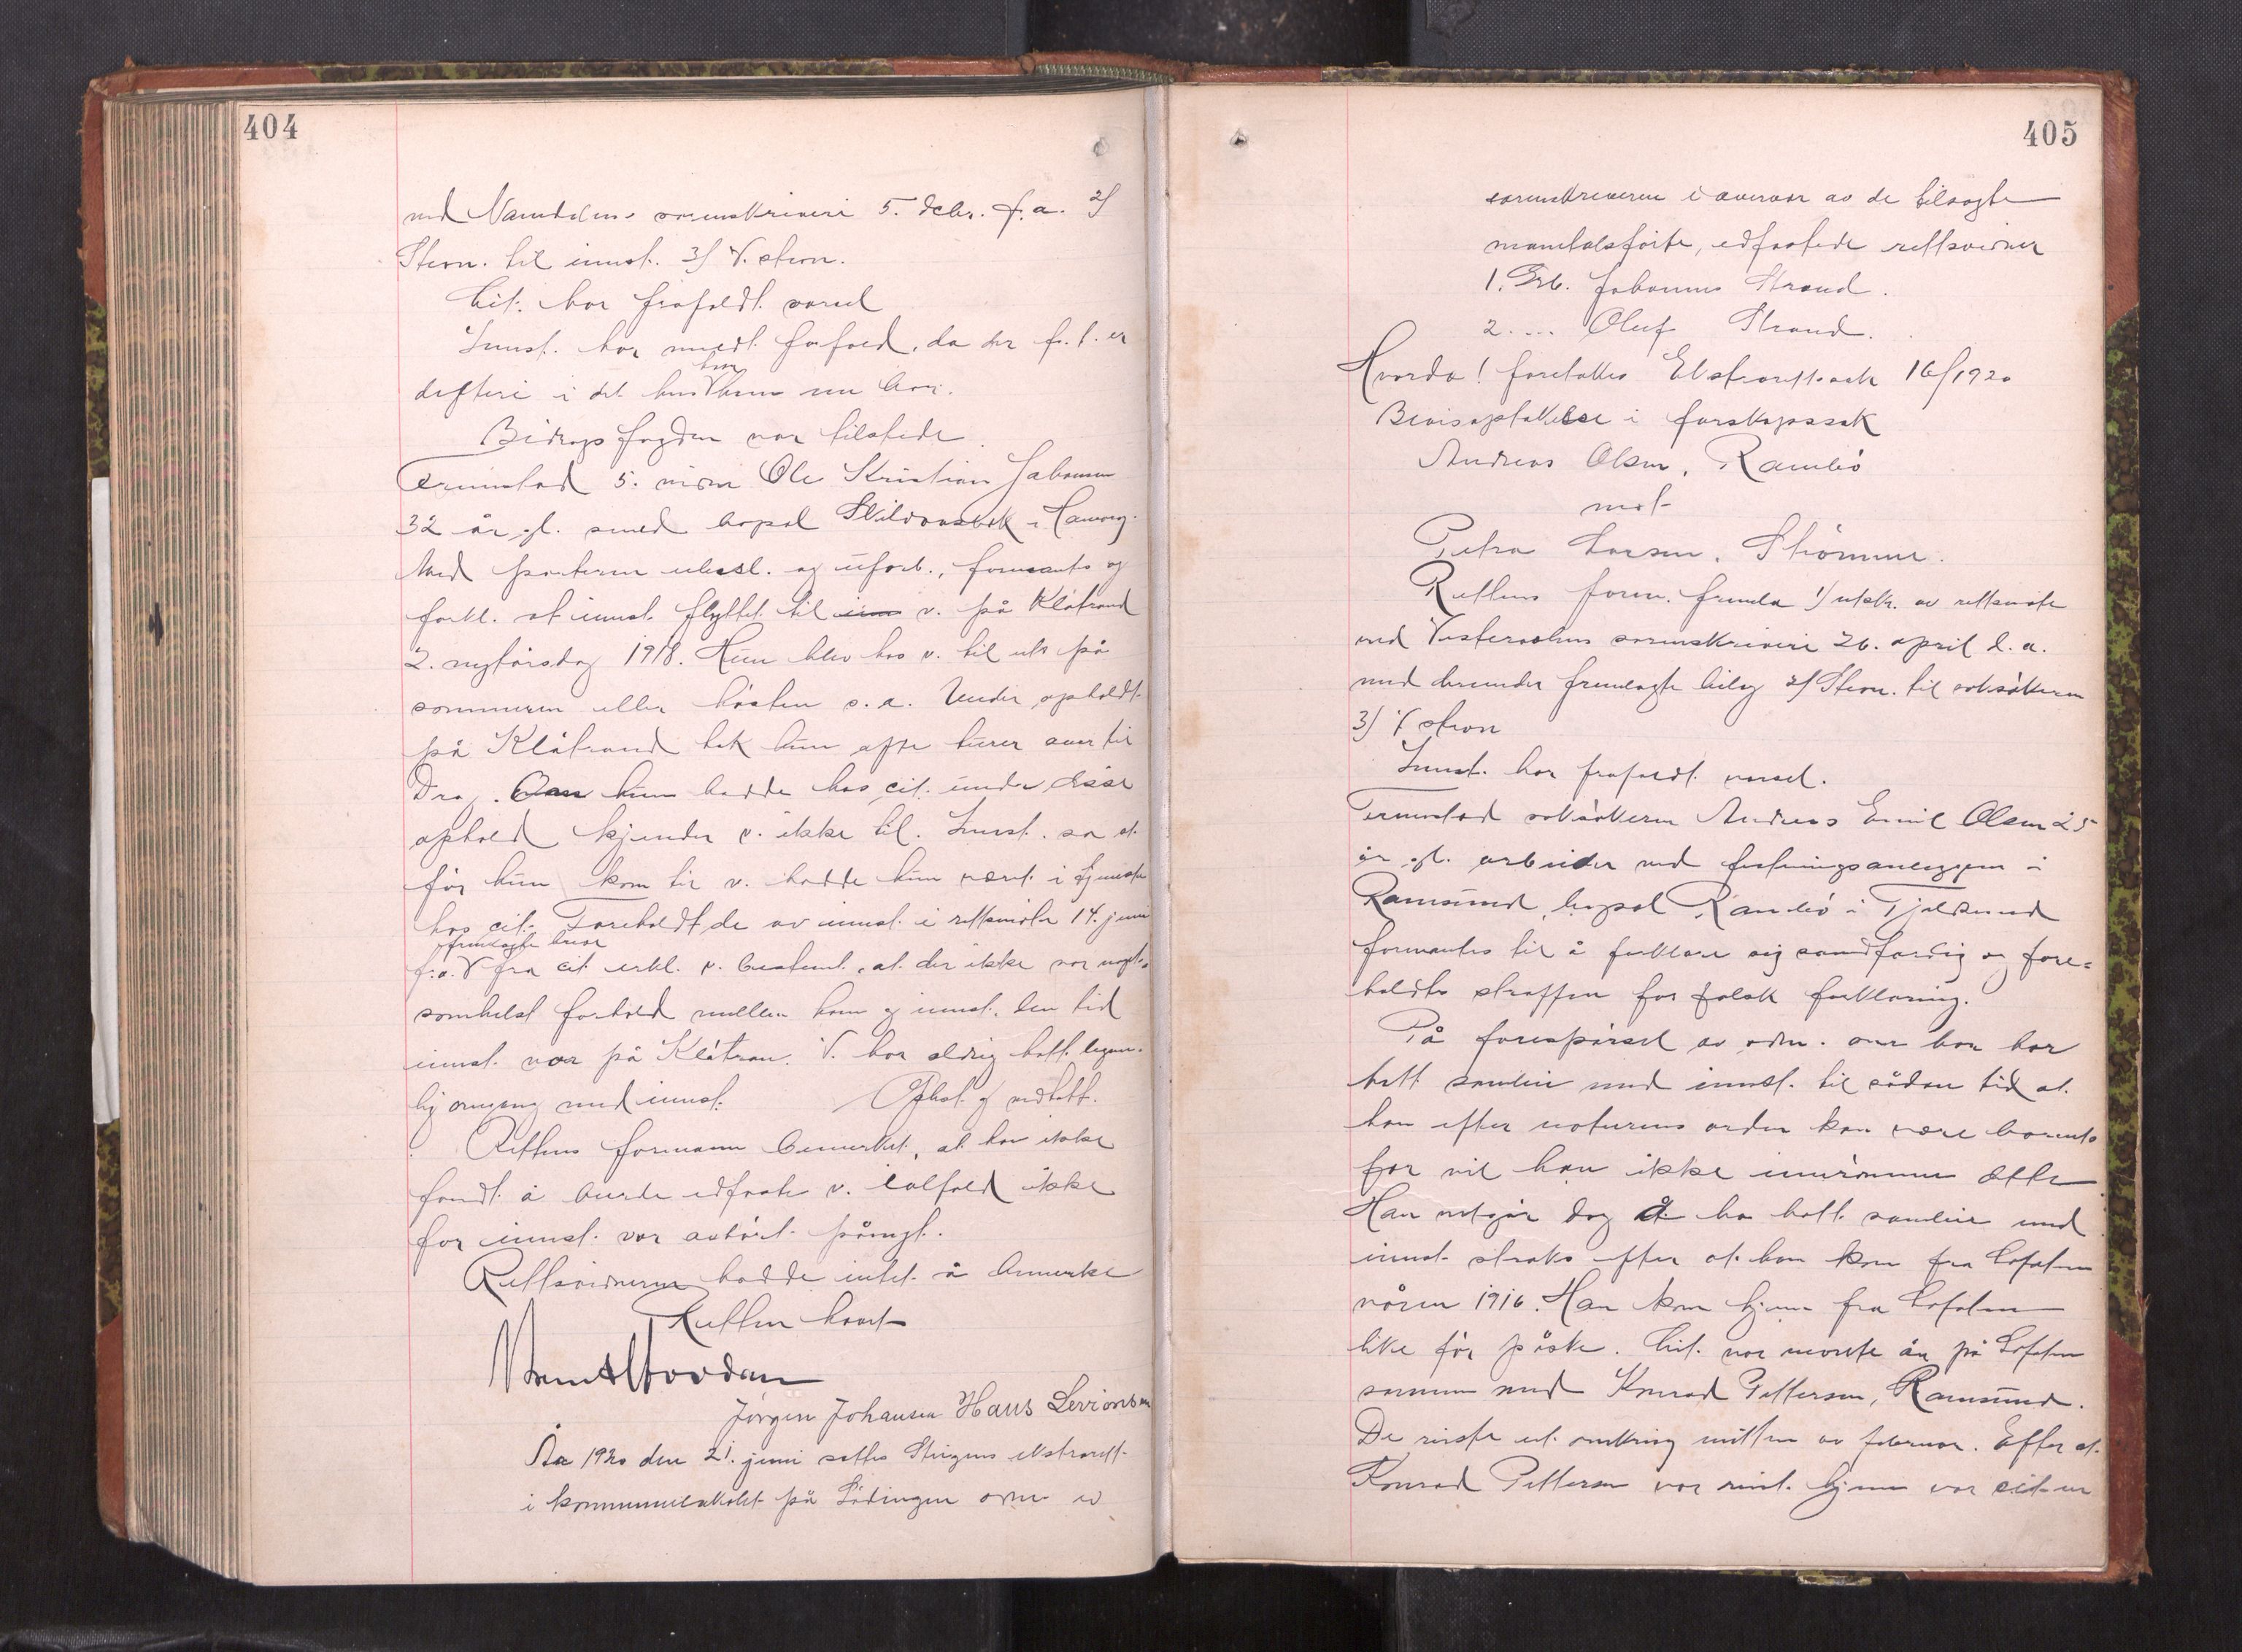 404
ved Namdalens sorenskriveri 5. decbr. f.a. 2/
Stevn. til innst. 3/ V. stevn.
Cit. har frafaldt varsel
Innst. har meldt forfald, da der f.t. er
difteri i det hus hvor hun nu bor.
Bidragsfogden var tilstede.
Fremstod 5. vidne Ole Kristian Johansen
32 år gl. smed bopel i Hamarøy.
Med parterne ubesl. og uforb., formantes og
forkl. at innst. flyttet til v. på Klåtrand
2. nyttårsdag 1918. Hun blev hos v. til ut på
sommeren eller høsten s.a. Under opholdt
på Klåtrand tok hun ofte turer over til
Drag. Om hun hadde hos cit. under disse
ophold kjender v. ikke til. Innst. sa at
før hun kom til v. hadde hun vært i tjeneste
hos cit. Foreholdt de av innst. i rettsmøte 14. juni
f.a. fremlagte breve fra cit. erkl. v. bestemt, at der ikke var noget
somhelst forhold mellem ham og innst. den tid
innst. var på Klåtran. V. har aldrig hatt legem-
lig omgang med innst. Oplest og vedtatt.
Rettens formann bemerket, at han ikke
fandt å burde edfæste v. ialfald ikke
før innst. var avhørt pånyt.
Rettsvidnerne hadde intet å bemerke
Retten hævet
Jørgen Johansen Hans Levionsen
År 1920 den 21. juni sattes Steigens ekstrarett
i kommunelokalet på Lødingen av
405
sorenskriveren i overvær av de tilsagte
mantalsførte, edfæstede rettsvidner
1. Grb. Johannes Strand.
2. ... Oluf Strand.
Hvorda! foretokes Ekstrarettssak 16/1920
Bevisoptakelse i farskapssak
Andreas Olsen, Rambø
mot
Petra Larsen, Strømmen.
Rettens form. fremla 1) utskr. av rettsmøte
ved Vesteraalens sorenskriveri 26. april d.a.
med derunder fremlagte bilag 2/ Stevn. til saksøkeren
3) V. stevn
Innst. har frafaldt varsel.
Fremstod saksøkeren Andreas Emil Olsen 25
år gl. arbeider ved festningsanleggene i
Ramsund, bopel Rambø i Tjeldsund
formantes til å forklare sig sandfærdig og fore-
holdtes straffen for falsk forklaring.
På forespørsel av adm. om han har
hatt samleie med innst. til sådan tid at
han efter naturens orden kan være barnets
far vil han ikke innrømme dette
Han vedgår dog å ha hatt samleie med
innst. straks efter at han kom fra Lofoten
våren 1916. Han kom hjem fra Lofoten
like før påske. Cit. var møtte å på Lofoten
sammen med Konrad Pettersen, Ramsund.
De reiste ut omkring mitten av februar. Efter at
Konrad Pettersen var reist hjem var cit. en